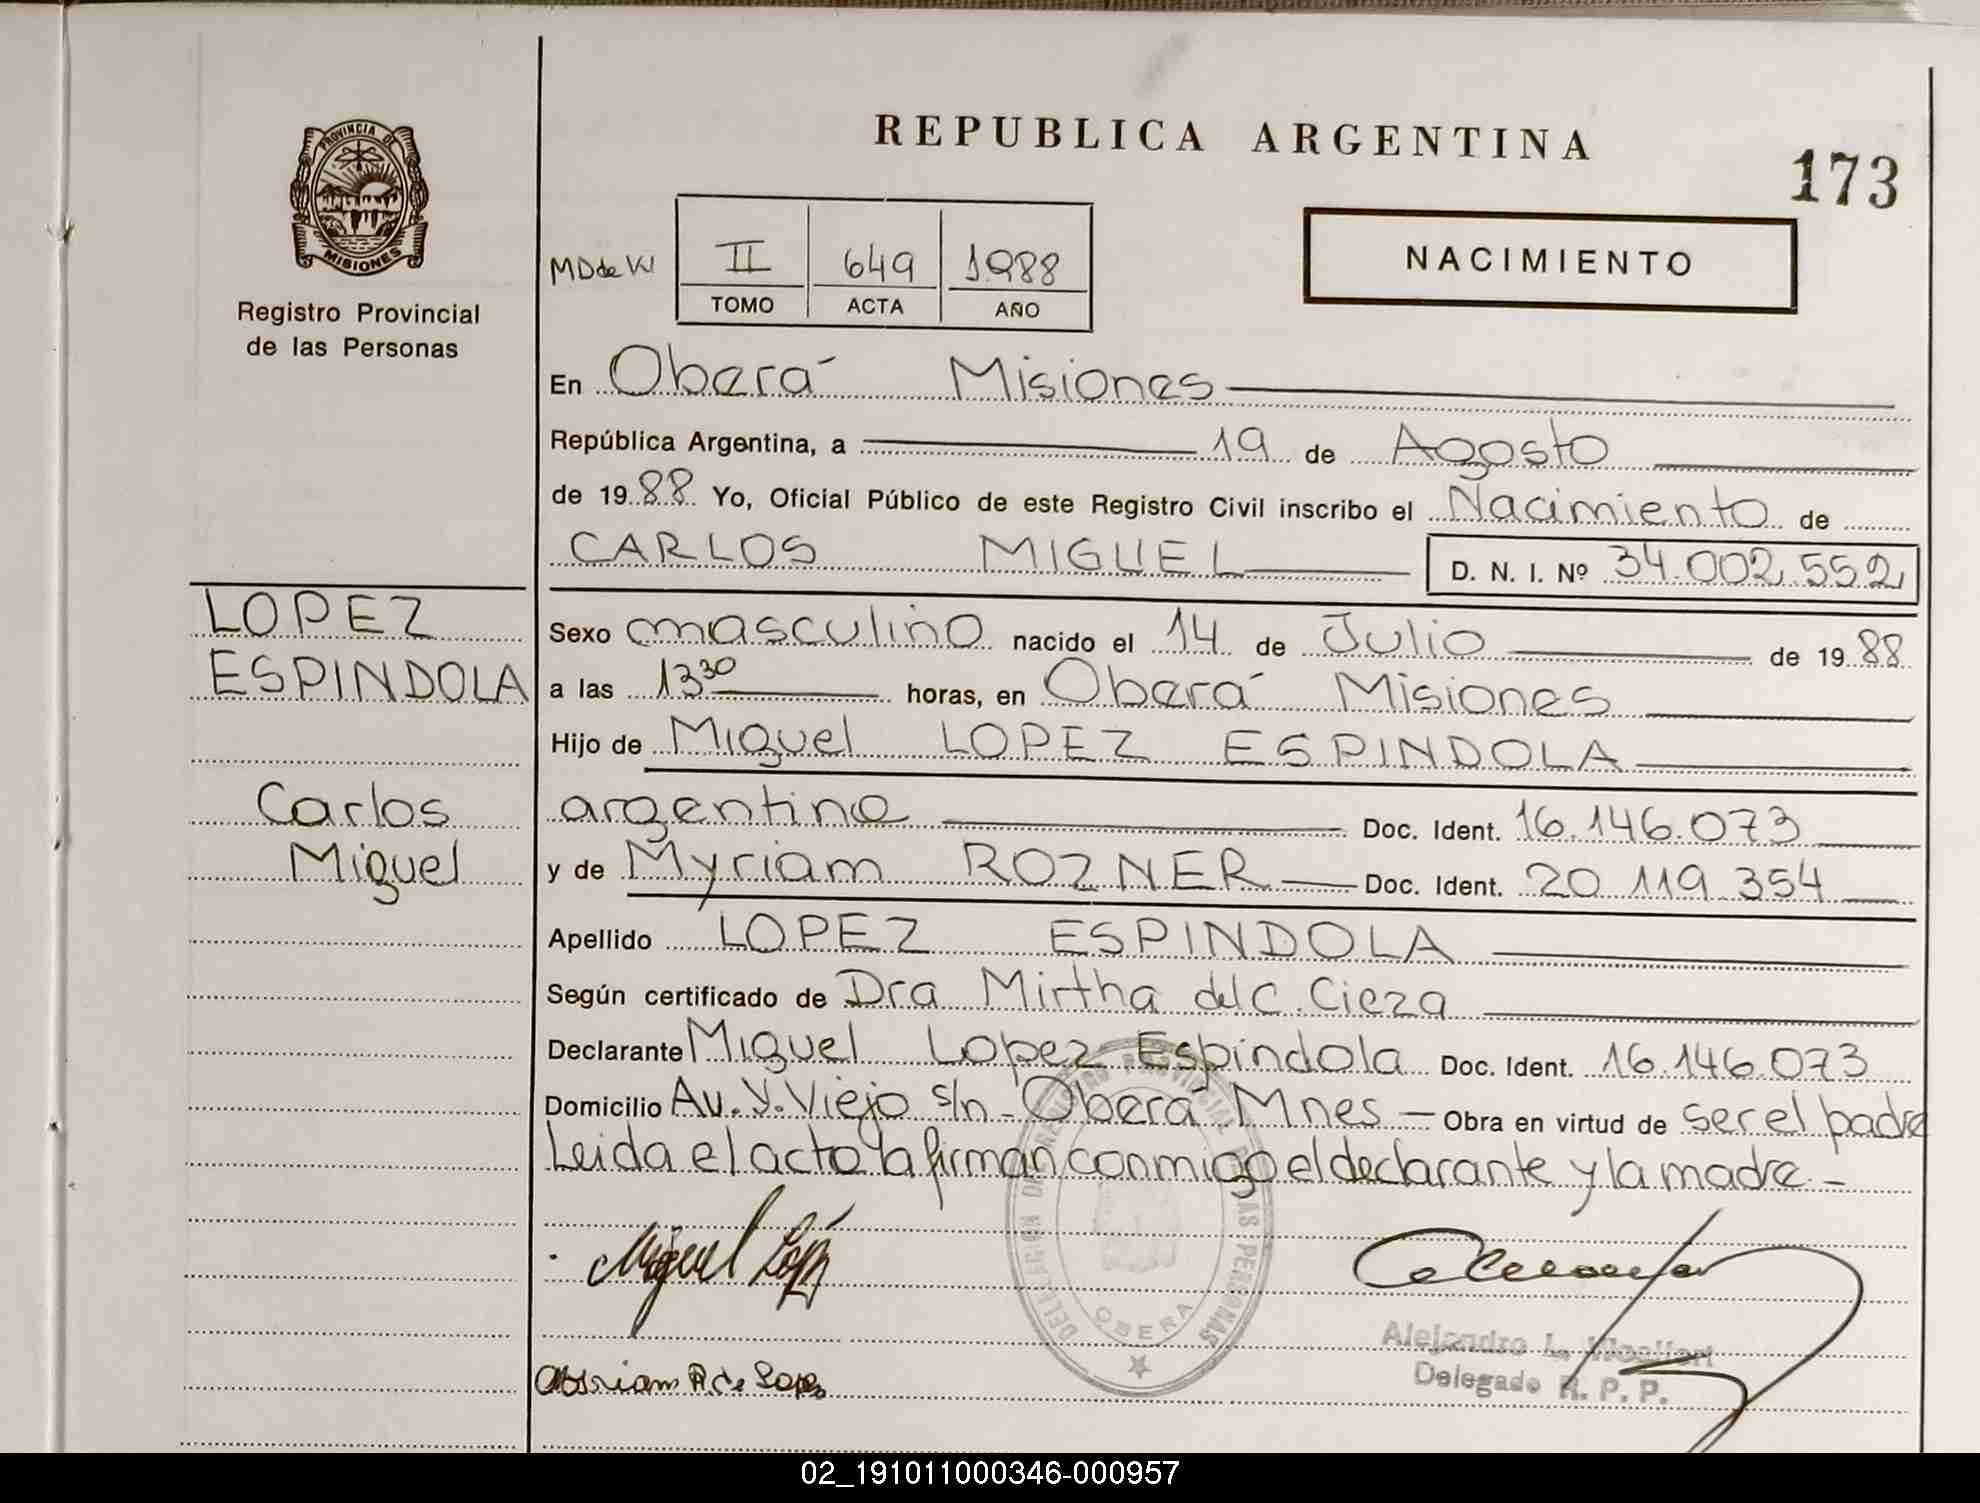 REPUBLICA ARGENTINA
173
PROVINCIA DE
MISIONES
Registro Provincial
de las Personas
II 649 1988
TOMO ACTA AÑO
NACIMIENTO
En Oberá Misiones
República Argentina, a 19 de Agosto
de 1988 Yo, Oficial Público de este Registro Civil inscribo el Nacimiento de
CARLOS MIGUEL D. N. I. Nº 34.002.552
LOPEZ
ESPINDOLA
Carlos
Miguel
Sexo masculino nacido el 14 de Julio de 1988
a las 13 30 horas, en Oberá Misiones
Hijo de Miguel LOPEZ ESPINDOLA
argentino Doc. Ident. 16.146.073
y de Myriam ROZNER Doc. Ident. 20.119.354
Apellido LOPEZ ESPINDOLA
Según certificado de Dra Mirtha del C. Cieza
Declarante Miguel Lopez Espindola Doc. Ident. 16.146.073
Domicilio Av. Y. Viejo s/n - Oberá Mnes - Obra en virtud de ser el padre
Leida el acta la firman conmigo el declarante y la madre. -
Miguel López
DELEGACION DE REGISTRO PROVINCIAL DE LAS PERSONAS
OBERA
Alejandro L.
Delegado R. P. P.
Myriam R. de Lopez
02_191011000346-000957